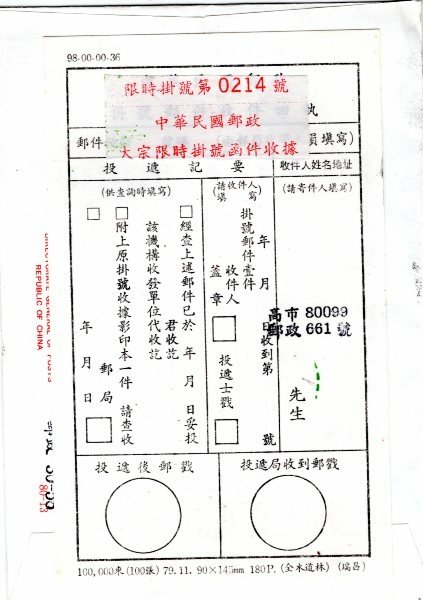 98-00-00-36
限時掛號第 0214 號
中華民國郵政
大宗限時掛號函件收據
執
郵件
員填寫)
投遞記要
收件人姓名地址
(供查詢時填寫)
(請收件人填寫)
(請寄件人填寫)
□經查上述郵件已於 年 月 日妥投
該機構收發單位代收訖
君收訖
□附上原掛號收據影印本一件 請查收
郵局
年 月 日
掛號郵件壹件
收件人
蓋章
年 月 日收到第 號
投遞士戳
高市 80099
郵政 661 號
先生
投遞後郵戳
投遞局收到郵戳
100,000束(100張) 79.11. 90×145mm 180P. (金木道林) (瑞昌)
DIRECTORATE GENERAL OF POSTS
REPUBLIC OF CHINA
80-13